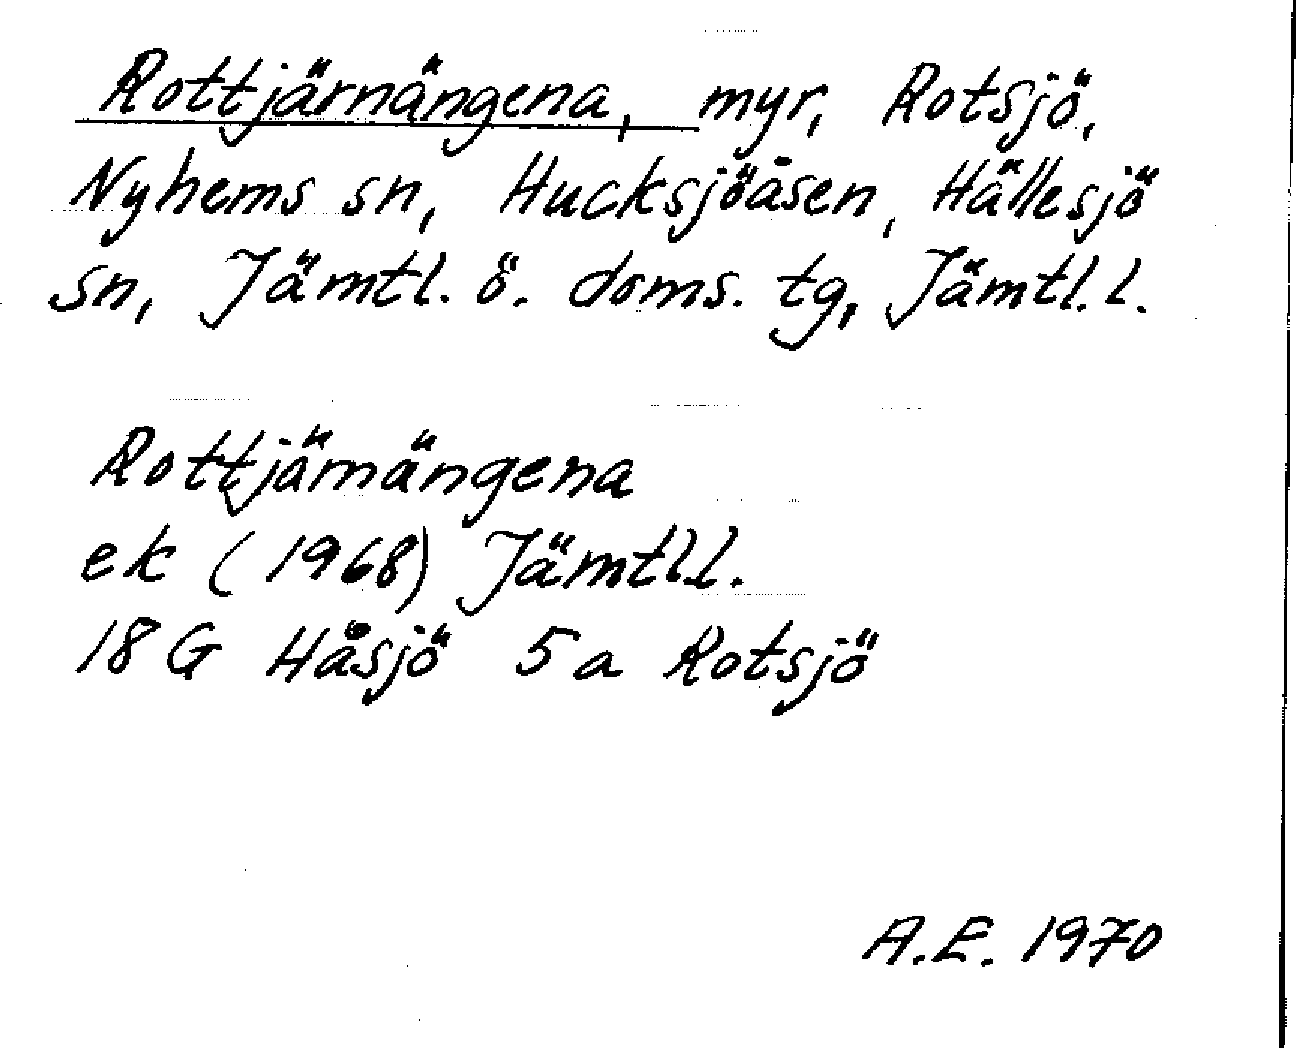 Rottjärnängena, myr, Rotsjö,
Nyhems sn, Hucksjöåsen, Hällesjö
sn, Jämtl. ö. doms. tg, Jämtl. l.
Rottjärnängena
ek (1968) Jämtl.l.
18 G Håsjö 5a Rotsjö
A.E. 1970